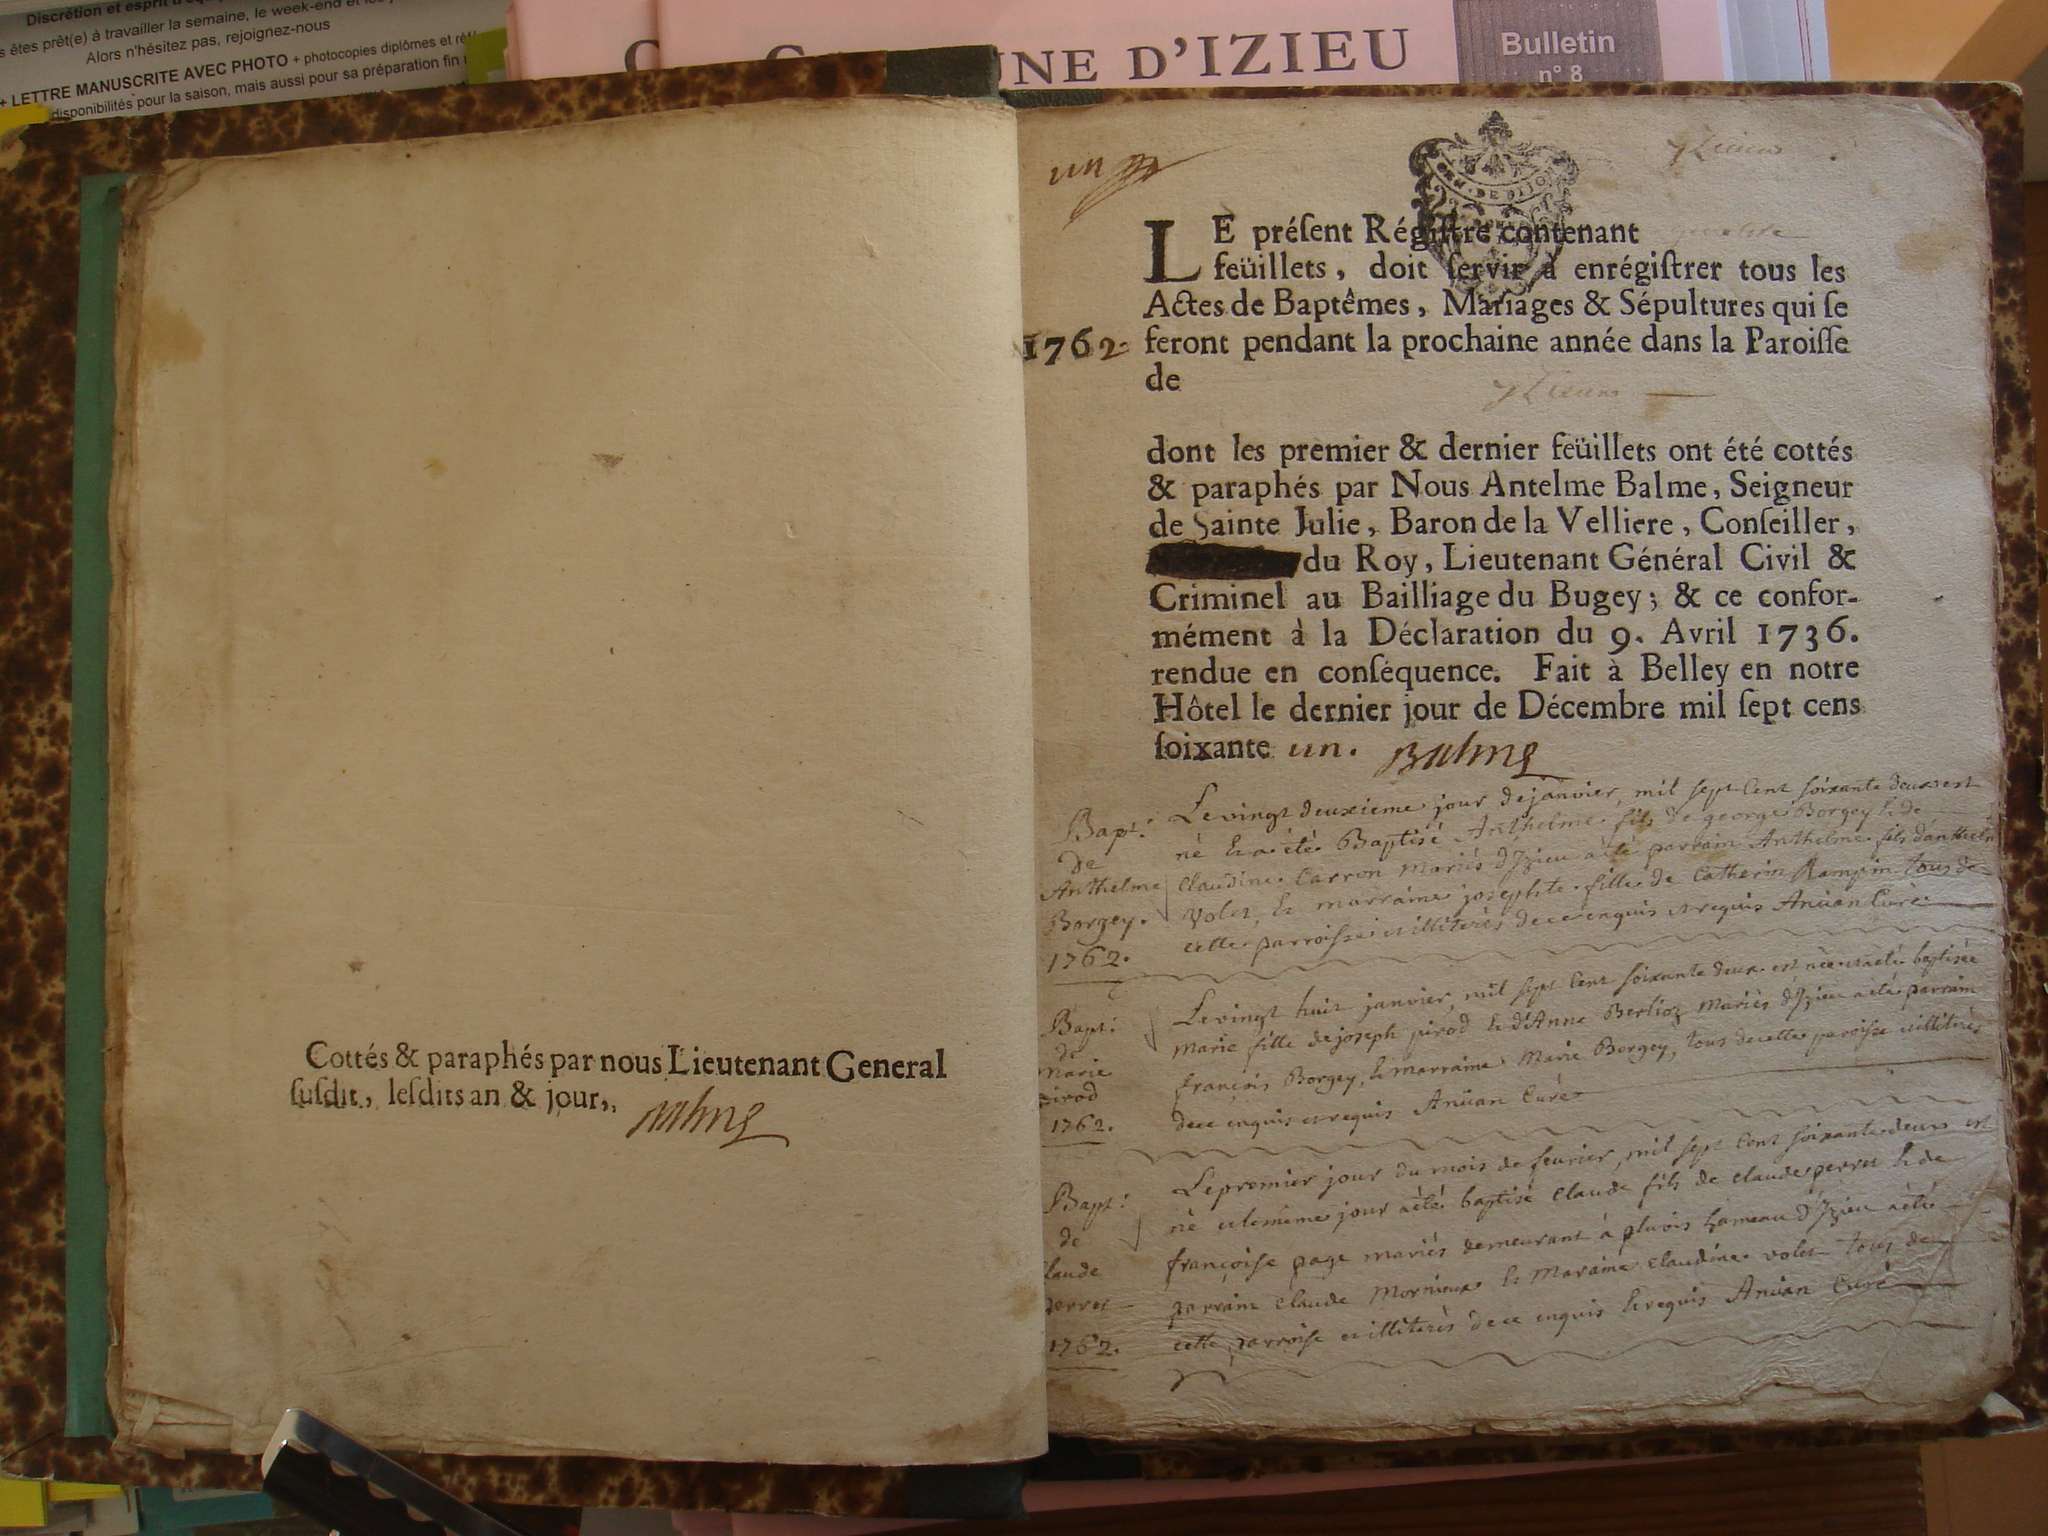 Discrétion et esprit d'équ
s êtes prêt(e) à travailler la semaine, le week-end et les j
Alors n'hésitez pas, rejoignez-nous
+ LETTRE MANUSCRITE AVEC PHOTO + photocopies diplômes et réf
disponibilités pour la saison, mais aussi pour sa préparation fin
UNE D'IZIEU
Bulletin
n° 8
Cottés & paraphés par nous Lieutenant General
suſdit, leſdits an & jour,
Balme
un
yzieux
GEN. DE DIJON
LE préſent Régiſtre contenant
feüillets, doit ſervir à enrégiſtrer tous les
Actes de Baptêmes, Mariages & Sépultures qui ſe
1762. feront pendant la prochaine année dans la Paroiſſe
de yzieux
dont les premier & dernier feüillets ont été cottés
& paraphés par Nous Antelme Balme, Seigneur
de Sainte Julie, Baron de la Velliere, Conſeiller,
du Roy, Lieutenant Général Civil &
Criminel au Bailliage du Bugey; & ce confor-
mément à la Déclaration du 9. Avril 1736.
rendue en conſéquence. Fait à Belley en notre
Hôtel le dernier jour de Décembre mil ſept cens
ſoixante un. Balme
Bapt:
de
Anthelme
Borgey.
1762.
Le vingt deuxieme jour de janvier, mil sept cent soixante deux est
né & a été Baptisé Anthelme fils de george Borgey & de
Claudine Carron mariés d'Izieu a été parrain Anthelme fils d'anthelm
Volet, & marraine josephte fille de Catherin Rampin tous de
cette parroisse et illiterés de ce enquis et requis Anüan Curé
Bapt:
de
marie
pirod
1762.
Le vingt huit janvier, mil sept cent soixante deux est née et a été baptisée
Marie fille de joseph pirod & d'Anne Berlioz mariés d'Izieu a été parrain
françois Borgey, & marraine Marie Borgey, tous de cette paroisse et illiterés
de ce enquis et requis Anüan Curé
Bapt:
de
laude
perret
1762.
Le premier jour du mois de feurier, mil sept cent soixante deux est
né et le même jour a été baptisé Claude fils de claude perret & de
françoise page mariés demeurant à pluvis hameau d'Izieu a été
parrain Claude Mornieux & Maraine Claudine volet tous de
cette parroise et illiterés de ce enquis & requis Anüan Curé